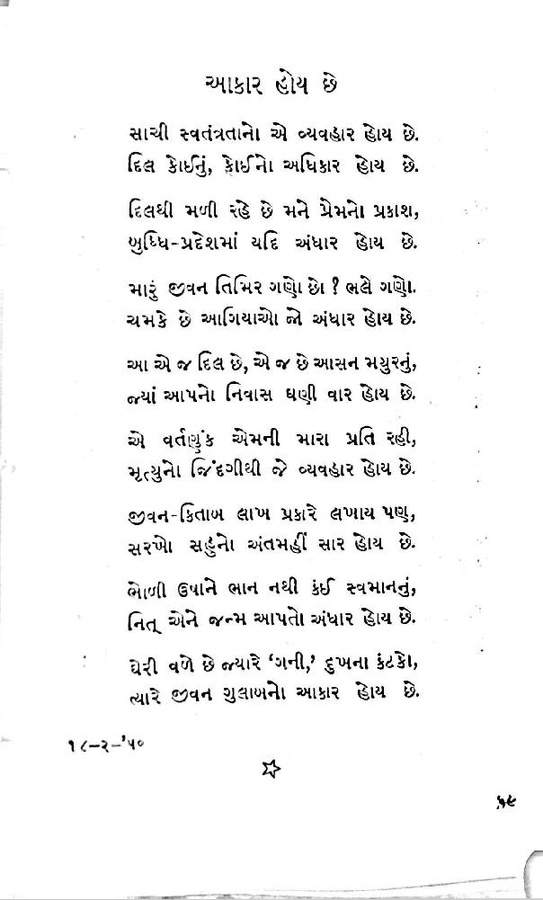 આકાર હોય છે
સાચી સ્વતંત્રતાનો એ વ્યવહાર હોય છે.
દિલ કોઈનું, કોઈનો અધિકાર હોય છે.
દિલથી મળી રહે છે મને પ્રેમનો પ્રકાશ,
બુધ્ધિ-પ્રદેશમાં યદિ અંધાર હોય છે.
મારું જીવન તિમિર ગણો છો ? ભલે ગણો.
ચમકે છે આગિયાઓ જો અંધાર હોય છે.
આ એ જ દિલ છે, એ જ છે આસન મયુરનું,
જ્યાં આપનો નિવાસ ઘણી વાર હોય છે.
એ વર્તણુંક એમની મારા પ્રતિ રહી,
મૃત્યુનો જિંદગીથી જે વ્યવહાર હોય છે.
જીવન-કિતાબ લાખ પ્રકારે લખાય પણ,
સરખો સહુંનો અંતમહીં સાર હોય છે.
ભોળી ઉષાને ભાન નથી કંઈ સ્વમાનનું,
નિત્ એને જન્મ આપતો અંધાર હોય છે.
ઘેરી વળે છે જ્યારે ‘ગની,’ દુખના કંટકો,
ત્યારે જીવન ગુલાબનો આકાર હોય છે.
૧૮-૨-’૫૦
૫૯